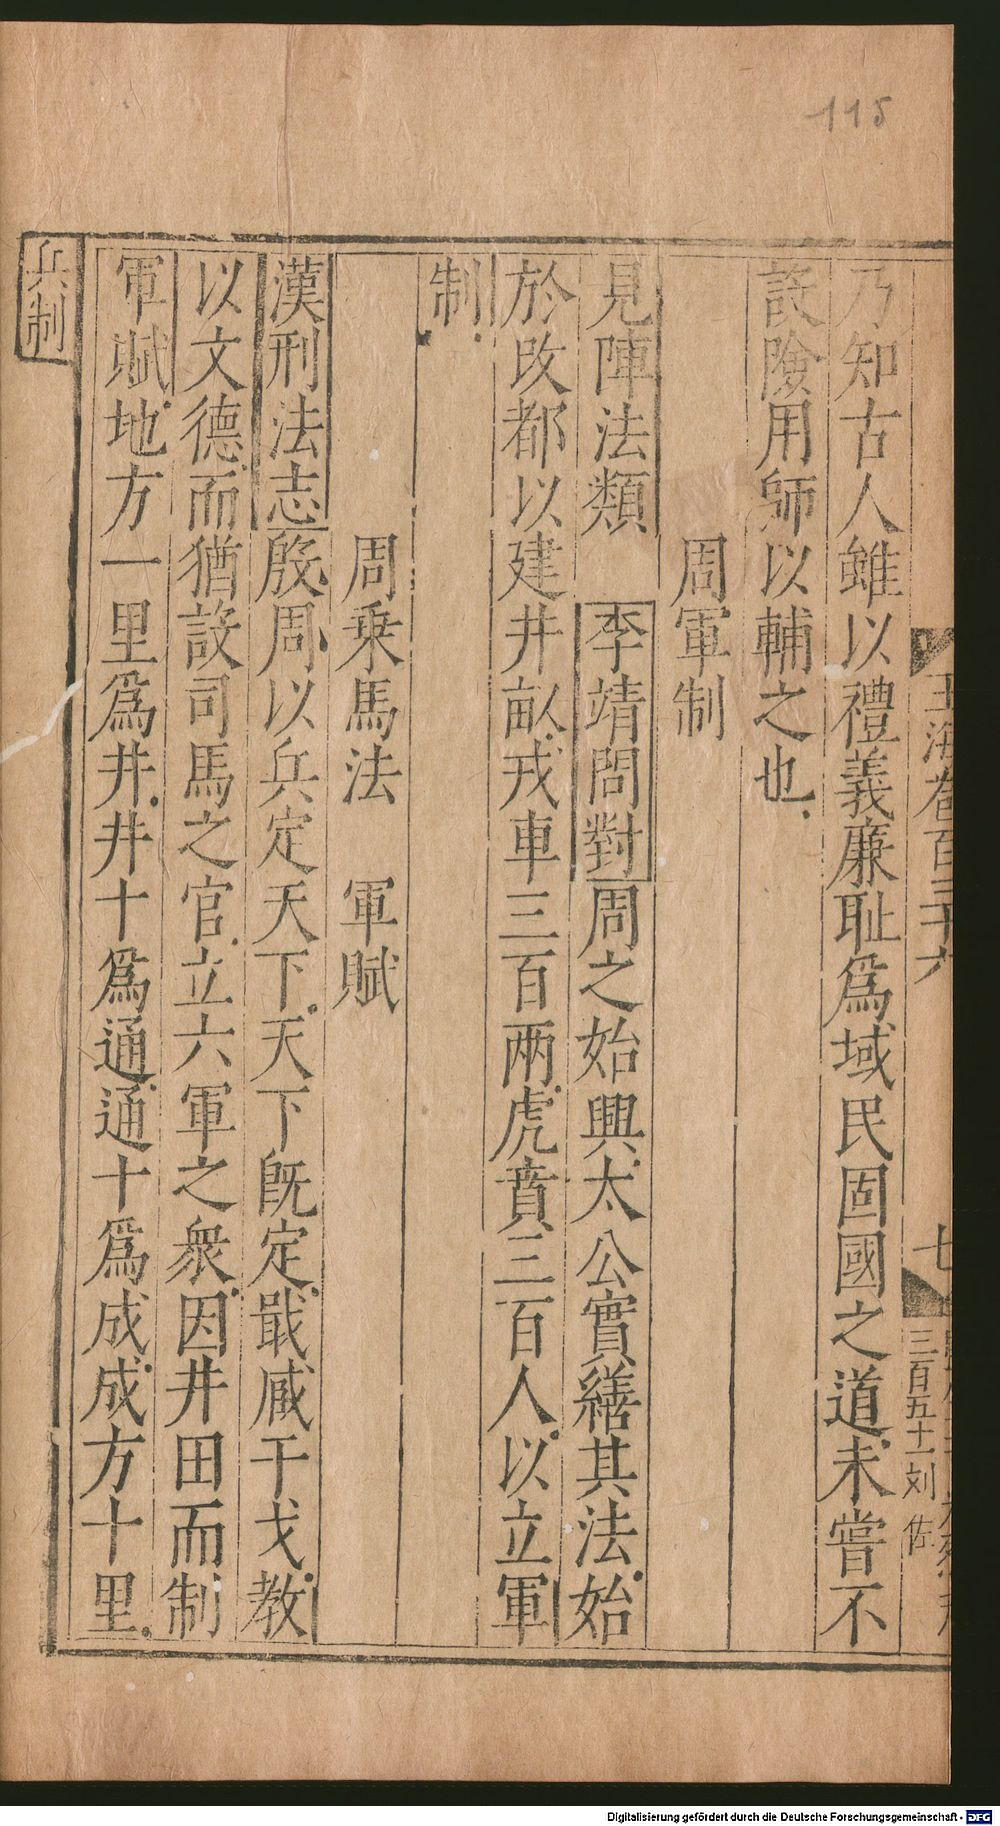 115
玉海卷百三十六
七
三百五十一刘佐
乃知古人雖以禮義廉耻爲域民固國之道未嘗不
設險用師以輔之也
周軍制
見陣法類 李靖問對周之始興太公實繕其法始
於攻都以建井畝戎車三百兩虎賁三百人以立軍
制
周乗馬法 軍賦
漢刑法志殷周以兵定天下天下旣定戢臧干戈教
以文德而猶設司馬之官立六軍之衆因井田而制
軍賦地方一里爲井井十爲通通十爲成成方十里
兵制
Digitalisierung gefördert durch die Deutsche Forschungsgemeinschaft - DFG